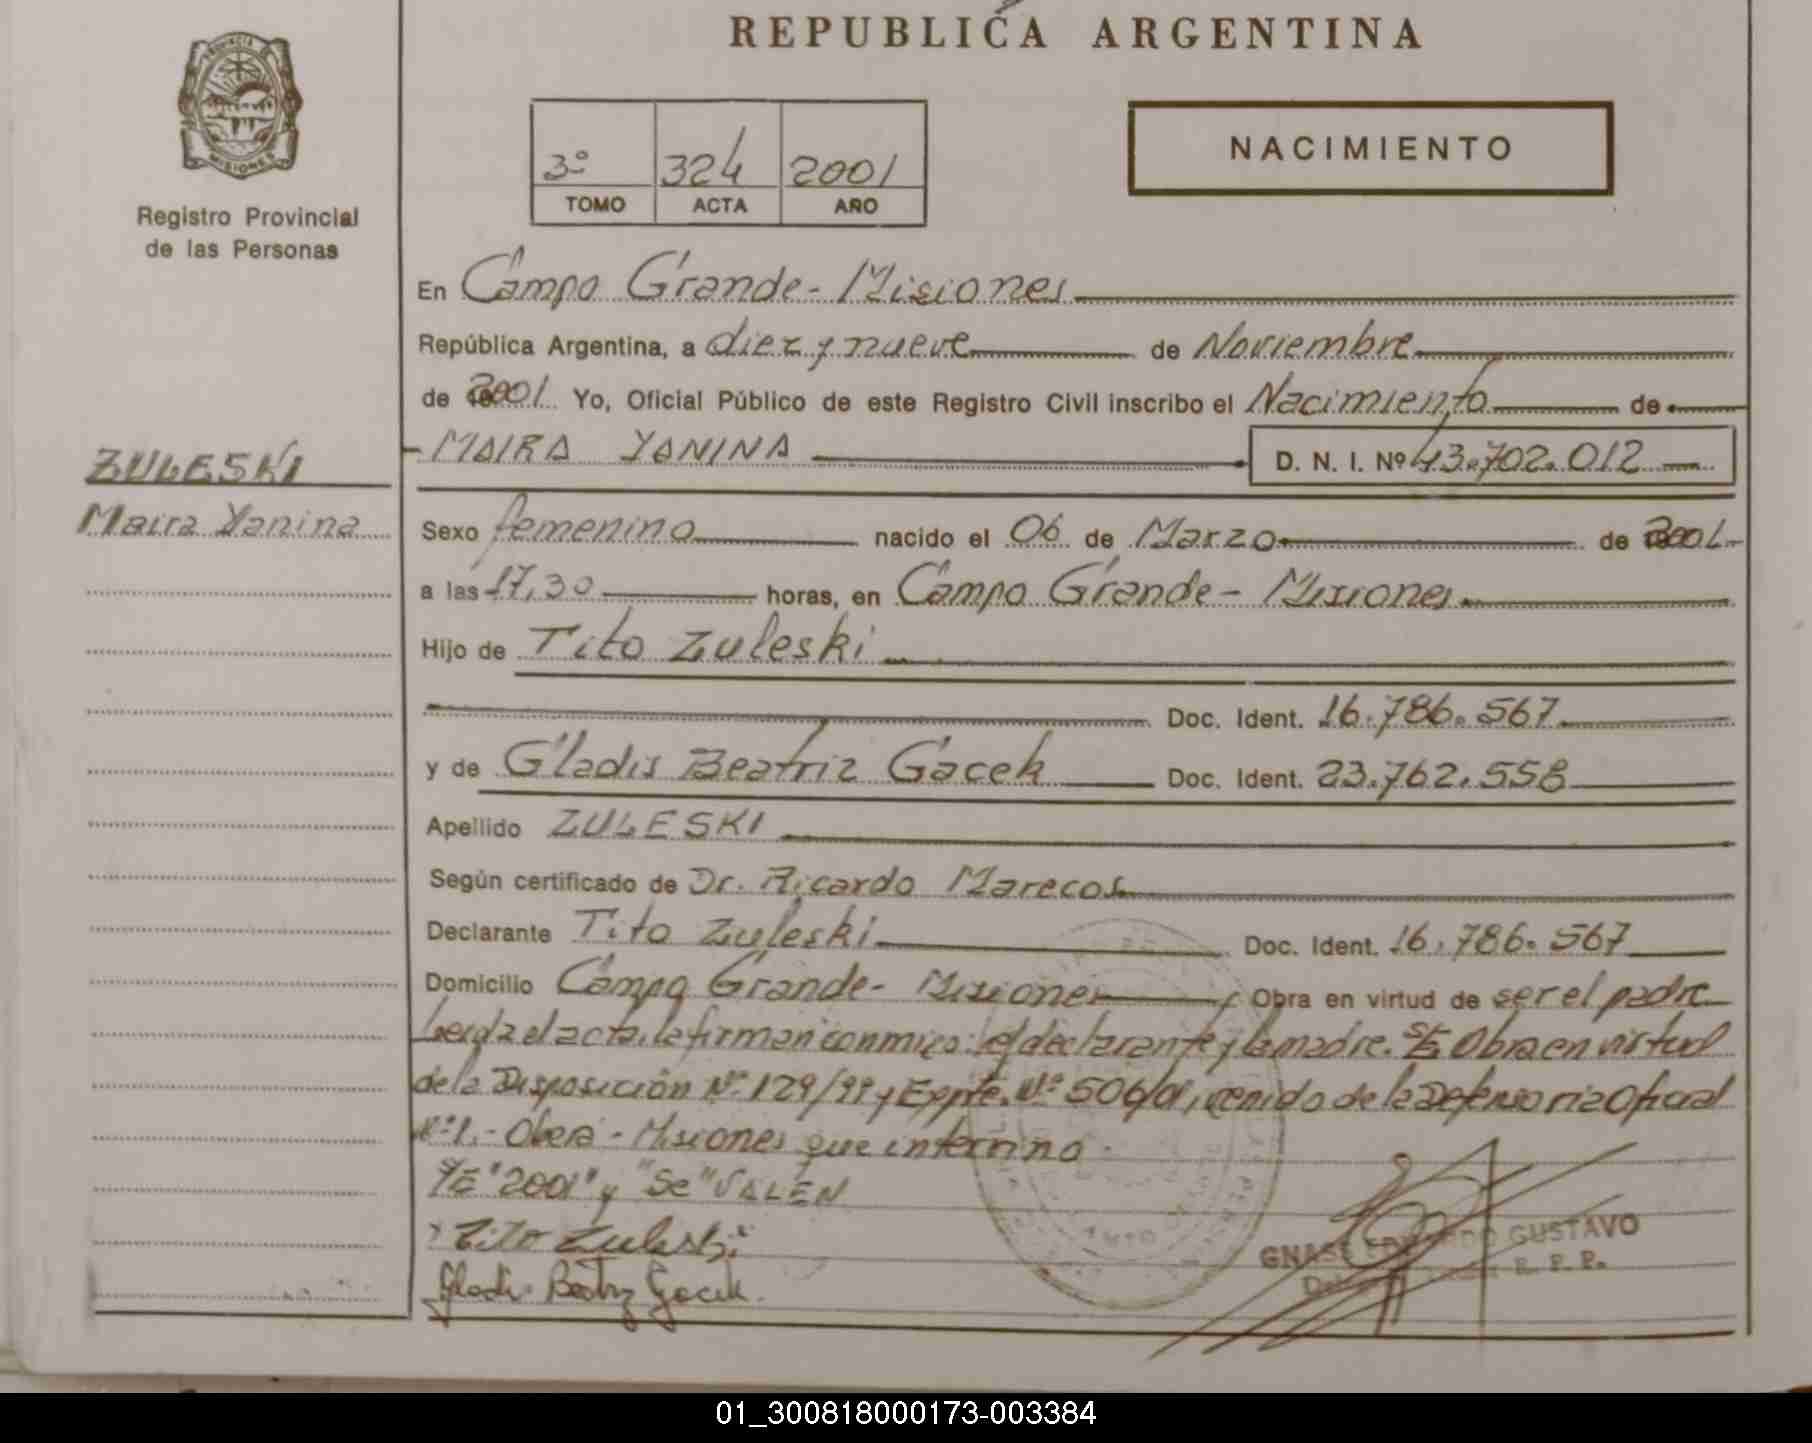 REPUBLICA ARGENTINA
PROVINCIA DE
MISIONES
Registro Provincial
de las Personas
3º 324 2001
TOMO ACTA AÑO
NACIMIENTO
En Campo Grande - Misiones
República Argentina, a diez y nueve de Noviembre
de 2001 Yo, Oficial Público de este Registro Civil inscribo el Nacimiento de
MAIRA YANINA D. N. I. Nº 43.702.012
ZULESKI
Maira Yanina
Sexo femenino nacido el 06 de Marzo de 2001
a las 17,30 horas, en Campo Grande - Misiones
Hijo de Tito Zuleski
Doc. Ident. 16.786.567
y de Gladis Beatriz Gacek Doc. Ident. 23.762.558
Apellido ZULESKI
Según certificado de Dr. Ricardo Marecos
Declarante Tito Zuleski Doc. Ident. 16.786.567
Domicilio Campo Grande - Misiones Obra en virtud de ser el padre
Leida el acta, la firman conmigo: el declarante y la madre. S/E Obra en virtud
de la Disposición Nº 129/99 y Expte. Nº 506/01, venido de la Defensoria Oficial
Nº 1.- Oberá - Misiones que intervino.
S/E "2001" y "Se" VALEN
Tito Zuleski
Gladis Beatriz Gacek
GUSTAVO
R. P. P.
01_300818000173-003384